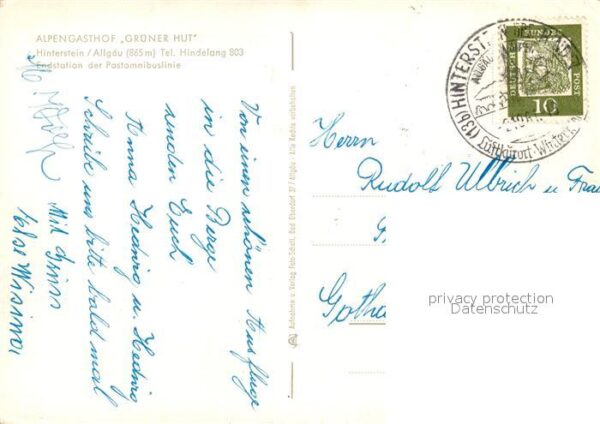 ALPENGASTHOF „GRÜNER HUT"
Hinterstein / Allgäu (865 m) Tel. Hindelang 803
Endstation der Postomnibuslinie
Von einem schönen Ausfluge
in die Berge
senden Euch
Anna Hedwig u. Hedwig
Schreibe uns bitte bald mal
Mit Gruss
Aufnahme u. Verlag Foto-Schell, Bad Oberdorf 37 / Allgäu · Alle Rechte vorbehalten
(13b) HINTERSTEIN
Luftkurort
DEUTSCHE BUNDESPOST
10
Herrn
Rudolf Ulbrich u Frau
Gotha
privacy protection
Datenschutz